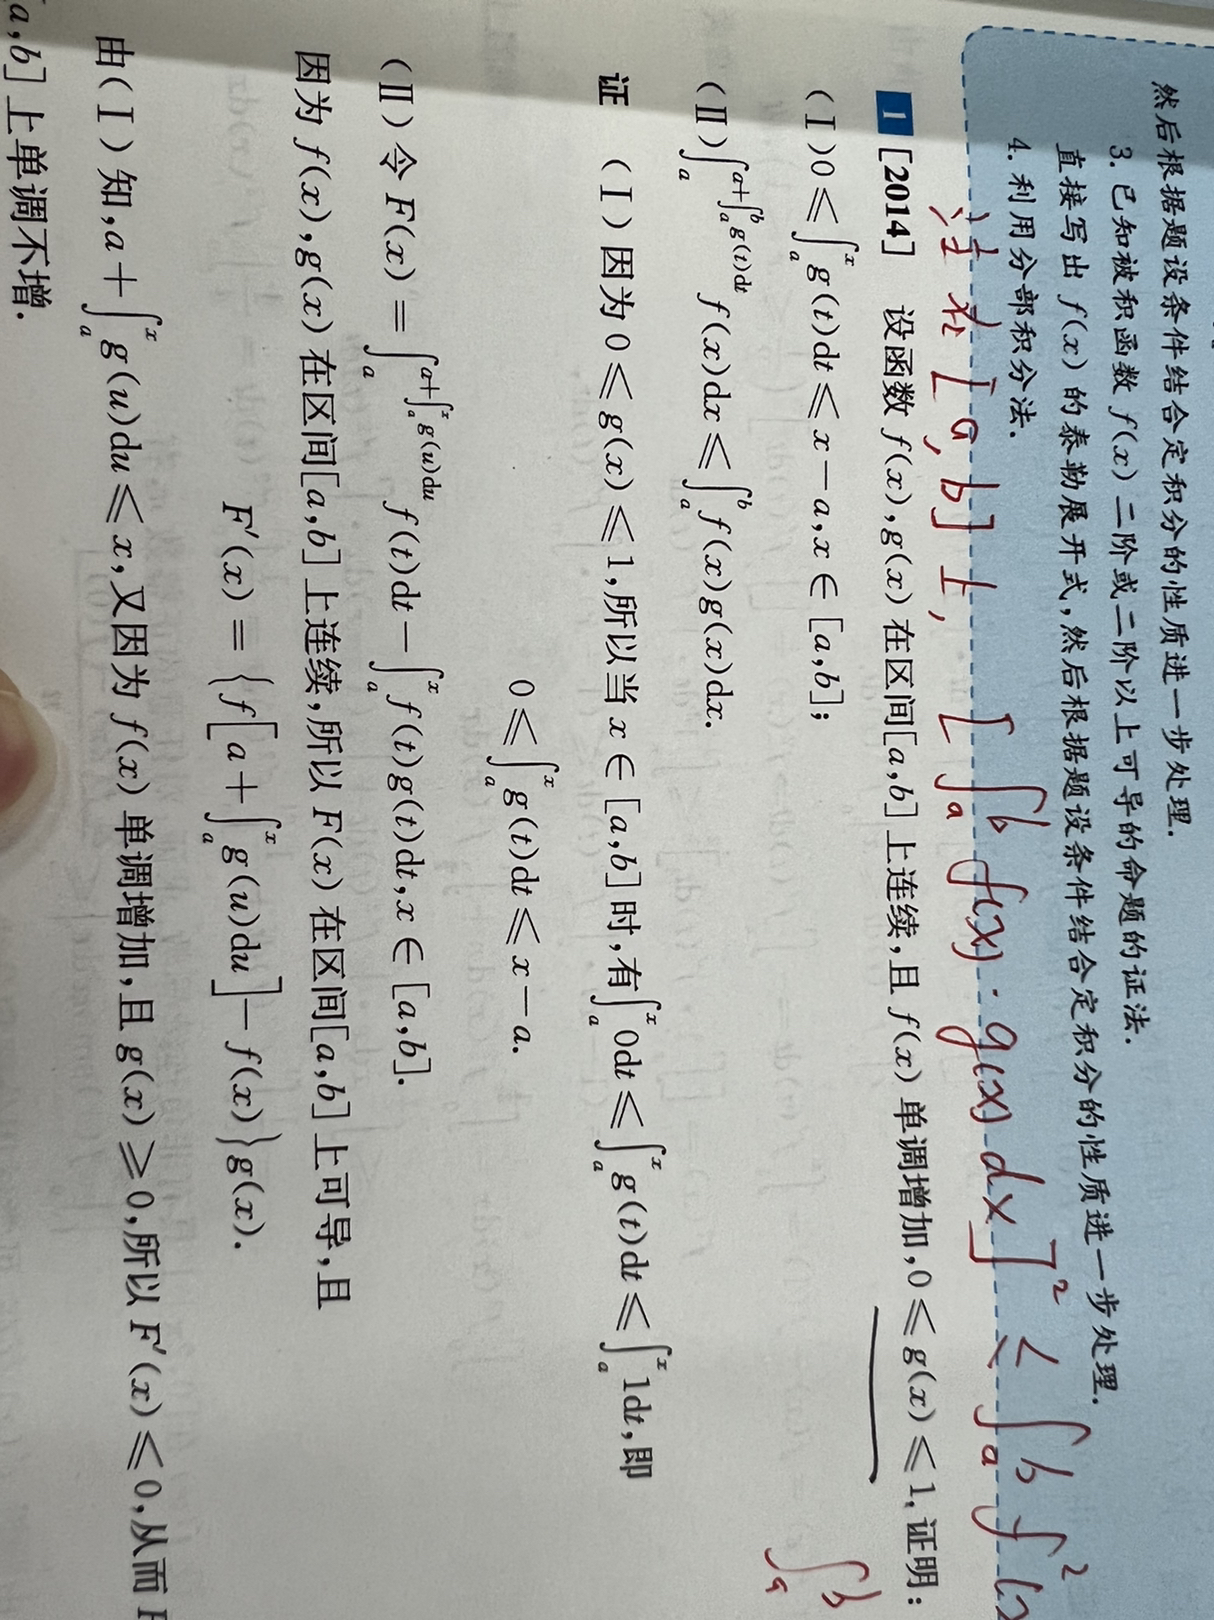 然后根据题设条件结合定积分的性质进一步处理.
3. 已知被积函数 f(x) 二阶或二阶以上可导的命题的证法.
直接写出 f(x) 的泰勒展开式,然后根据题设条件结合定积分的性质进一步处理.
4. 利用分部积分法.
[a,b]上, [∫_a^b f(x)·g(x)dx]² ≤ ∫_a^b f²
1 [2014] 设函数 f(x),g(x) 在区间[a,b]上连续,且 f(x) 单调增加,0⩽g(x)⩽1,证明:
(Ⅰ)0⩽∫_a^x g(t)dt⩽x−a,x∈[a,b];
∫_a^b
(Ⅱ)∫_a^{a+∫_a^b g(t)dt} f(x)dx⩽∫_a^b f(x)g(x)dx.
证 (Ⅰ)因为 0⩽g(x)⩽1,所以当 x∈[a,b]时,有∫_a^x 0dt⩽∫_a^x g(t)dt⩽∫_a^x 1dt,即
0⩽∫_a^x g(t)dt⩽x−a.
(Ⅱ)令 F(x)=∫_a^{a+∫_a^x g(u)du} f(t)dt−∫_a^x f(t)g(t)dt,x∈[a,b].
因为 f(x),g(x) 在区间[a,b]上连续,所以 F(x) 在区间[a,b]上可导,且
F′(x)={f[a+∫_a^x g(u)du]−f(x)}g(x).
由(Ⅰ)知,a+∫_a^x g(u)du⩽x,又因为 f(x) 单调增加,且 g(x)⩾0,所以 F′(x)⩽0,从而 F
a,b]上单调不增.